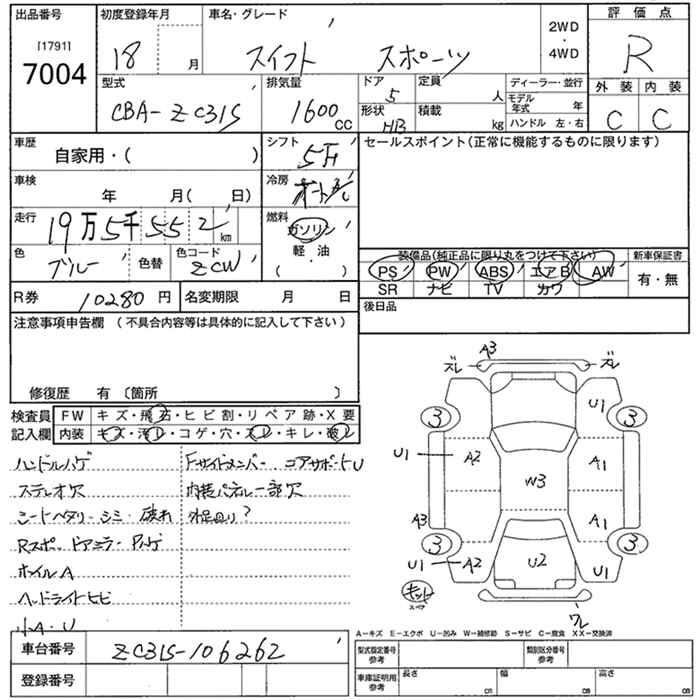 出品番号 初度登録年月 車名・グレード 2WD・4WD 評価点
[1791] 7004 18 月 スイフト スポーツ R
型式 排気量 ドア 定員 ディーラー・並行 外装 内装
CBA-ZC31S 1600cc 5 人 モデル年式 年 C C
形状 積載 ハンドル 左・右
HB kg
車歴 シフト セールスポイント(正常に機能するものに限ります)
自家用・( ) 5F
車検 冷房
年 月( 日) オートAC
走行 燃料
19万5千552km ガソリン
軽・油
( )
色 色替 色コード 装備品(純正品に限り丸をつけて下さい) 新車保証書
ブルー ZCW PS PW ABS エアB AW 有・無
SR ナビ TV カワ
R券 10280円 名変期限 月 日 後日品
注意事項申告欄 (不具合内容等は具体的に記入して下さい)
修復歴 有 〔箇所 〕
検査員 FW キズ・飛石・ヒビ割・リペア跡・X要
記入欄 内装 キズ・汚レ・コゲ・穴・スレ・キレ・破レ
ハンドルハゲ Fサイドメンバー コアサポートU
ステレオ欠 内装パネル一部欠
シートヘタリ・シミ・破れ 外足回り?
Rスポ ドアミラー Pハゲ
ホイルA
ヘッドライトヒビ
小A・U
車台番号 ZC31S-106262
登録番号
ズレ A3 ズレ
3 U1 3
U1 A2 A1
W3
A3 A1
3 3
U1 A2 U2 U1
キット
スペア
ワレ
A-キズ E-エクボ U-凹み W-補修跡 S-サビ C-腐食 XX-交換済
型式指定番号 参考 類別区分番号 参考
車庫証明用 参考 長さ cm 幅 cm 高さ cm